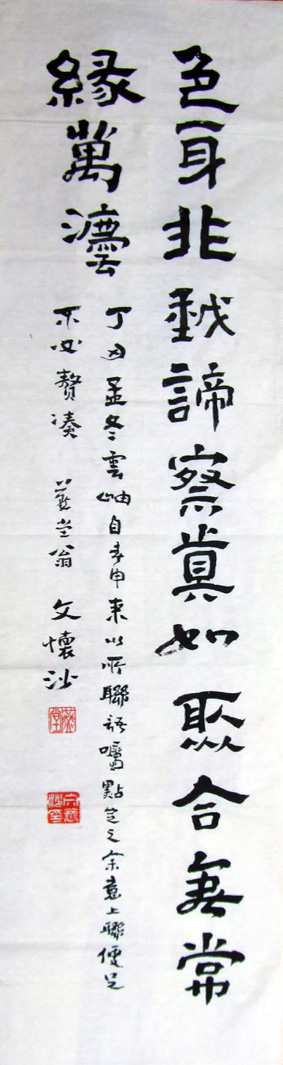 色身非我諦察眞如聚合無常
緣萬灋
丁丑孟冬雲岫自春申來以所聯語囑點定之余意上聯便足
不必贅湊 燕堂翁 文懷沙